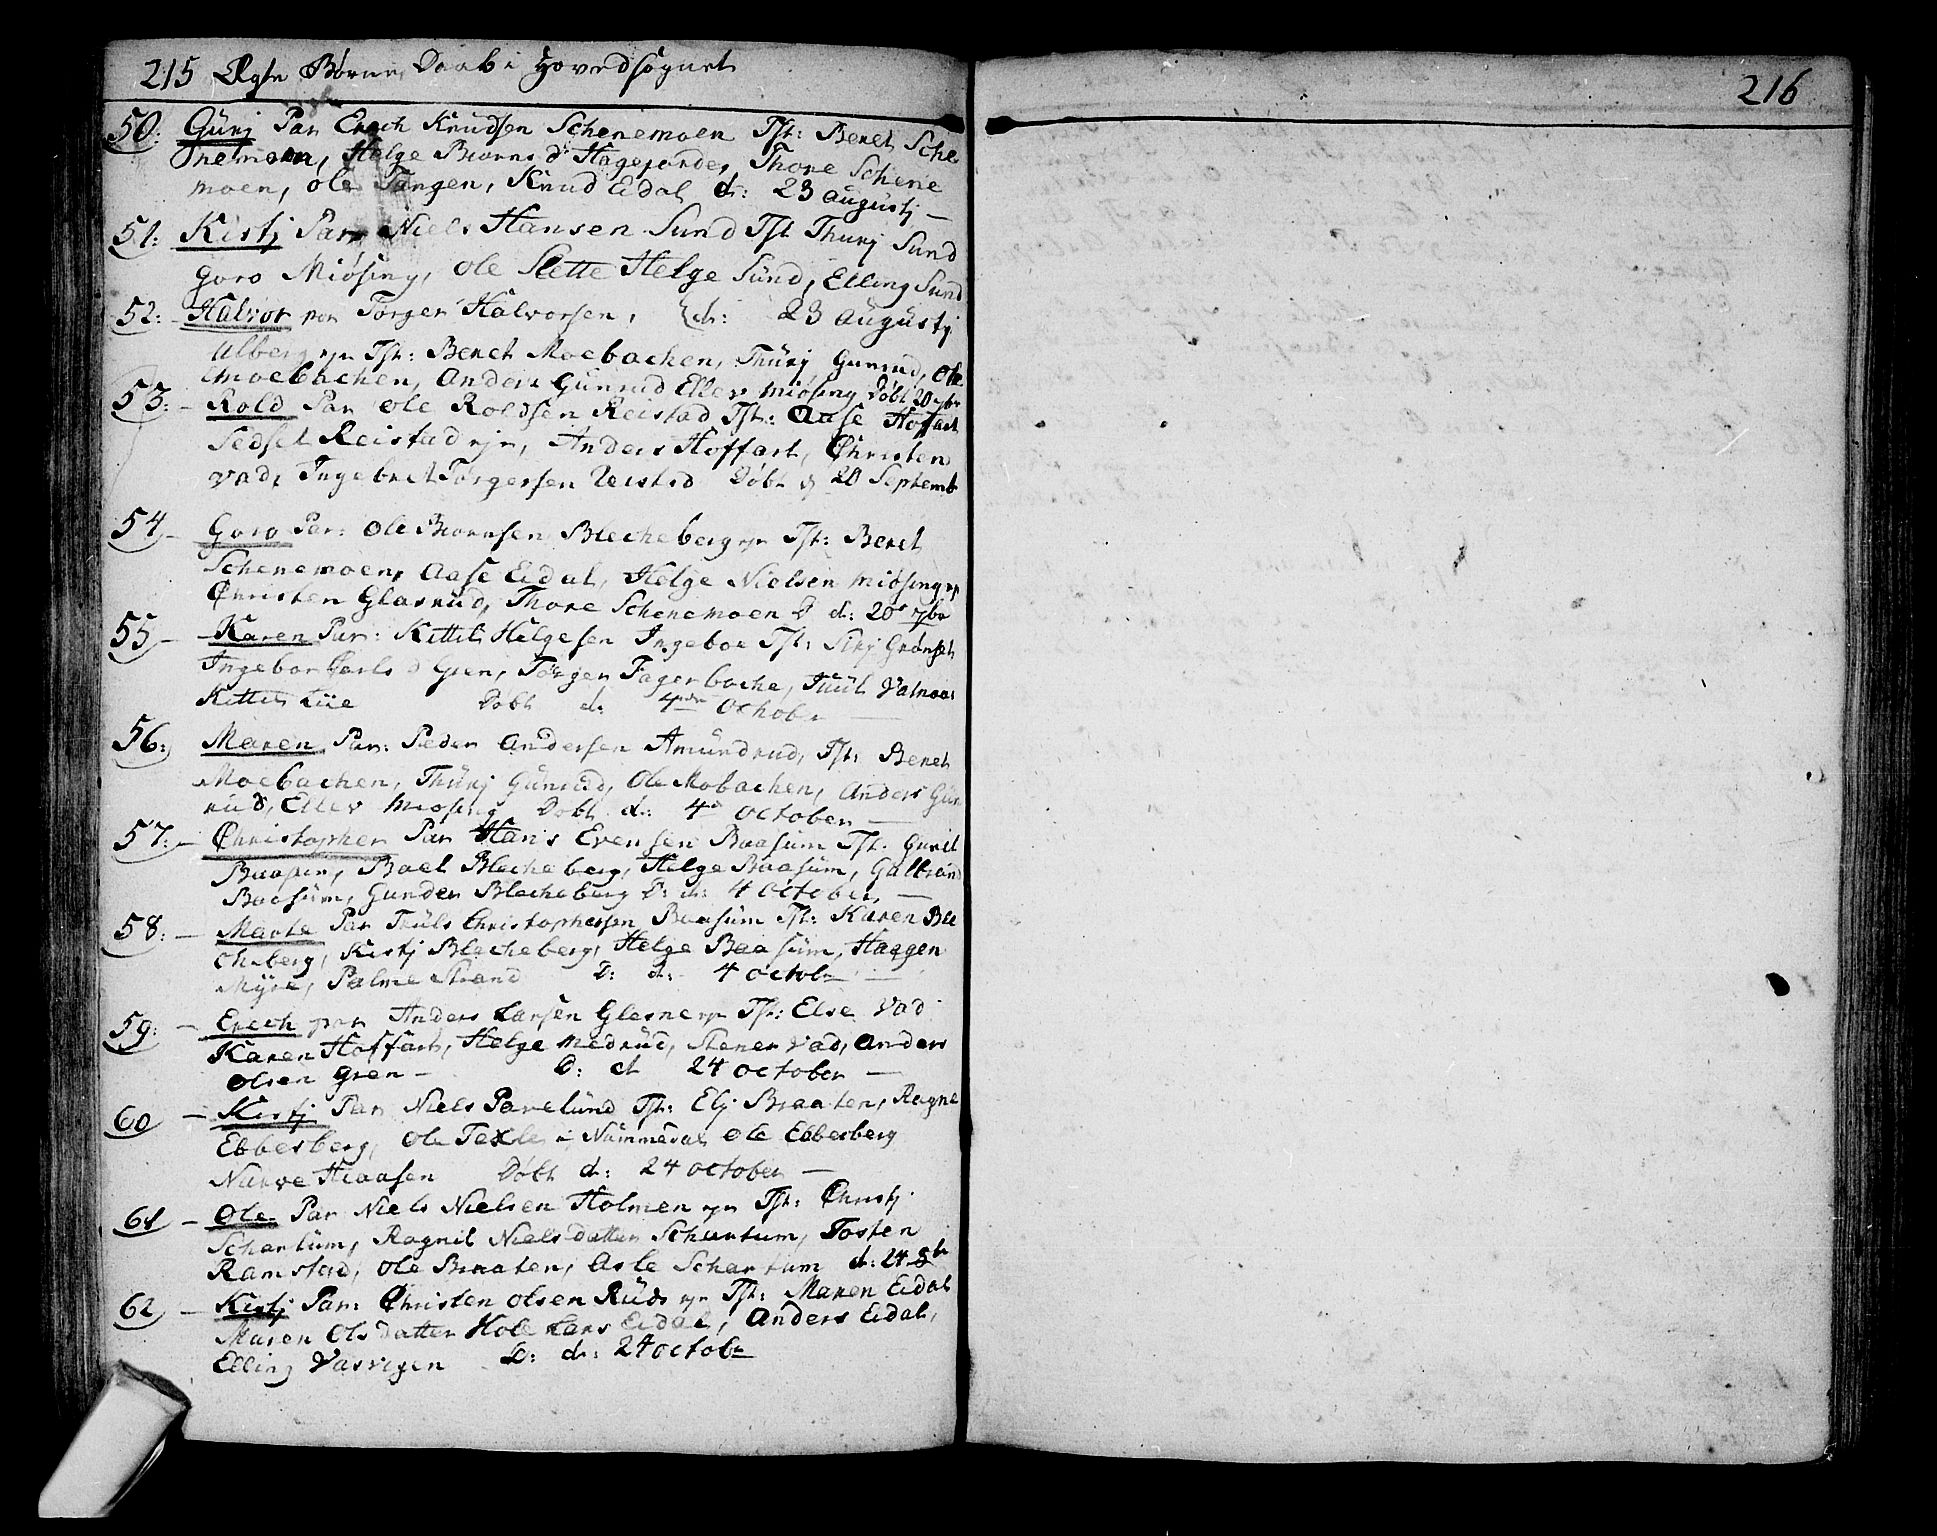 215 Ægte Børns Daab i Hovedsognet
216
50: Gurj Par Erich Knudsen Schenemoen Tst: Beret Sche
nemoen, Helge Biørnsd Hagejordet, Thore Schene
moen, Ole Tangen, Knud Eidal d: 23 Augustj —
51: Kistj Par Niels Hansen Sund Tst Thurj Sund
Goro Miøsing, Ole Slette Helge Sund, Elling Sund
52: Halvor par Torger Halvorsen, d: 23 Augustj
Ulberg ejr Tst: Beret Moebachen, Thurj Gunrud, Ole
Moebachen, Anders Gunrud Ellev Miøsing Døbt 20 7br
53: — Rold Par Ole Roldsen Reistad Tst: Aase Hoffart
Sedsel Reistad ejr, Anders Hoffart, Christen
Vad, Ingebret Torgersen Reistad Døbt d 20 Septemb
54 — Goro Par: Ole Biørnsen Blecheberg ejr Tst: Beret
Schenemoen, Aase Eidal, Helge Nielsen Miøsing ejr
Christen Glasrud, Thore Schenemoen D d: 20 7br
55 — Karen Par: Kittil Helgesen Ingeboe Tst: Sirj Grønset
Ingebor Carlsd Gren, Torgen Fagerbache, Juul Valnaas
Kittil Liie Døbt d: 4de Octobr —
56: Maren Par: Peder Andersen Amundrud, Tst: Beret
Moebachen, Thurj Gunrud, Ole Mobachen, Anders Gun
rud, Ellev Miøsing Døbt d: 4de October —
57: — Christopher Par Hans Evensen Baasum Tst: Guril
Baasum, Boel Blecheberg, Helge Baasum, Gulbrand
Baasum, Gunder Blecheberg D: d: 4 October —
58: — Marte Par Truls Christophersen Baasum Tst: Karen Ble
cheberg, Kistj Blecheberg, Helge Baasum, Haagen
Myre, Palme Strand D: d: 4 Octobr —
59: — Erech par Anders Larsen Glesne ejr Tst: Else Vad
Karen Hoffart, Helge Medrud, Stener Vad, Anders
Olsen Gren — D: d 24 October —
60 — Kistj Par Niels Parelund Tst: Elj Braaten, Ragne
Ebbesberg, Ole Texle i Nummedal Ole Ebbesberg
Narve Hiaasen Døbt d: 24 October —
61 — Ole Par Niels Nielsen Holmen ejr Tst: Christj
Schartum, Ragnil Nielsdatter Schartum, Tosten
Ramstad, Ole Braaten, Asle Schartum d: 24 8br
62 — Kistj Par: Christen Olsen Ruds ejr Tst: Maren Eidal
Maren Olsdatter Hole Lars Eidal, Anders Eidal,
Elling Vasvigen D: d: 24 Octobr